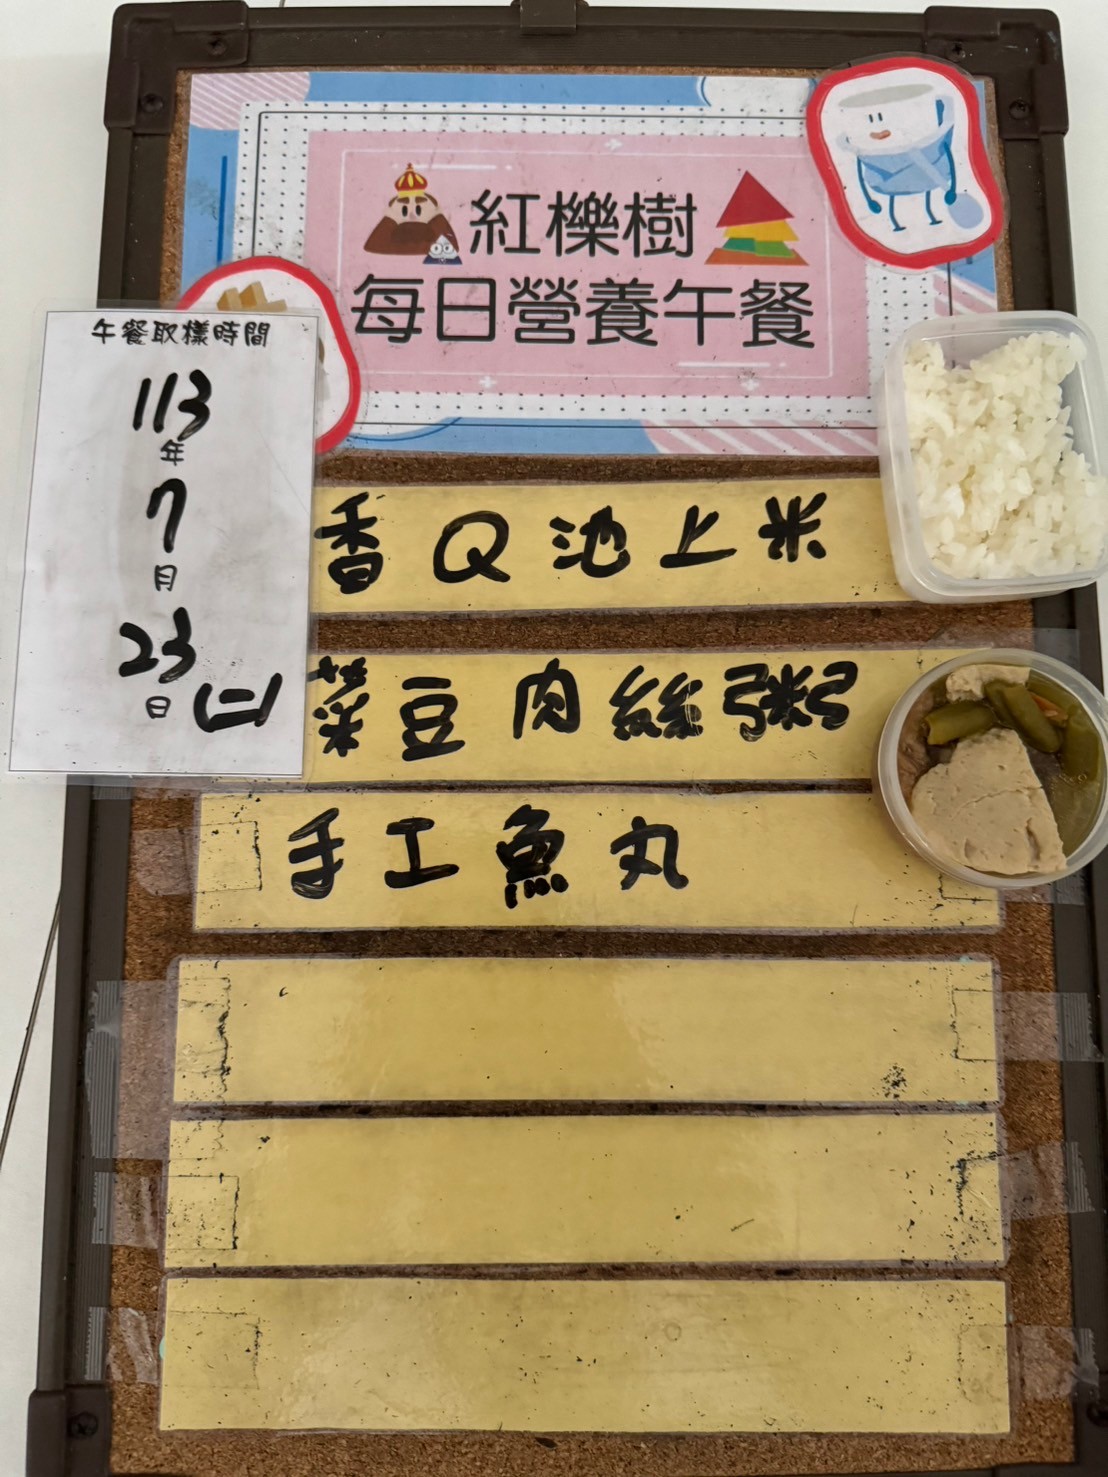 紅櫟樹
每日營養午餐
午餐取樣時間
113
年
7
月
23
日(二)
香Q池上米
菜豆肉絲粥
手工魚丸